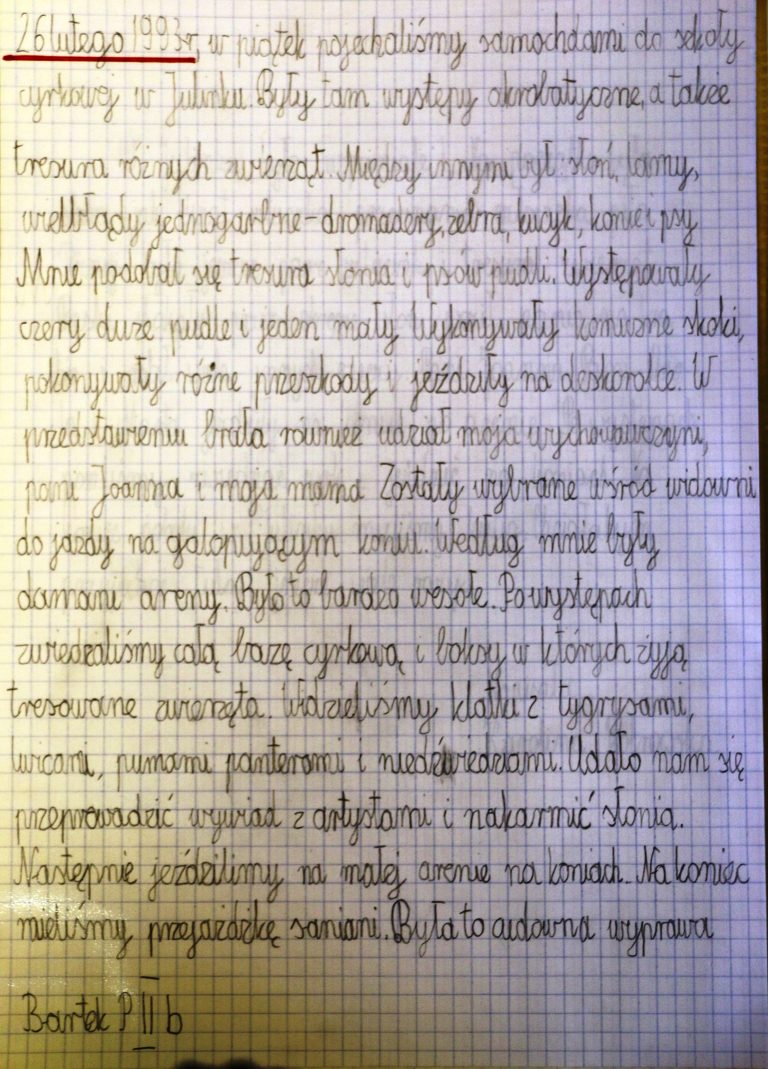 26 lutego 1993r, w piątek pojechaliśmy samochdami do szkoły
cyrkowej w Julinku. Były tam występy akrobatyczne, a także
tresura różnych zwierząt. Między innymi był: słoń, lamy,
wielbłądy jednogarbne - dromadery, zebra, kucyk, konie i psy
Mnie podobał się tresura słonia i psów pudli. Występowały
czery duże pudle i jeden mały Wykonywały komiczne skoki,
pokonywały różne przeszkody i jeździły na deskorolce. W
przedstawieniu brała również udział moja wychowawczyni,
pani Joanna i moja mama Zostały wybrane wśród widowni
do jazdy na galopującym koniu. Według mnie były
damami areny. Było to bardzo wesołe. Po występach
zwiedzaliśmy całą bazę cyrkową i boksy w których żyją
tresowane zwierzęta. Widzieliśmy klatki z tygrysami,
lwicami, pumami panterami i niedźwiedziami. Udało nam się
przeprowadzić wywiad z artystami i nakarmić słonia.
Następnie jeździlimy na małej arenie na koniach. Na koniec
mieliśmy przejażdżkę saniani. Była to cudowna wyprawa
Bartek P II b